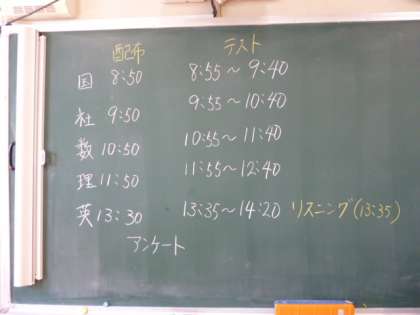 配布 テスト
国 8:50 8:55～9:40
社 9:50 9:55～10:40
数 10:50 10:55～11:40
理 11:50 11:55～12:40
英 13:30 13:35～14:20 リスニング(13:35)
アンケート